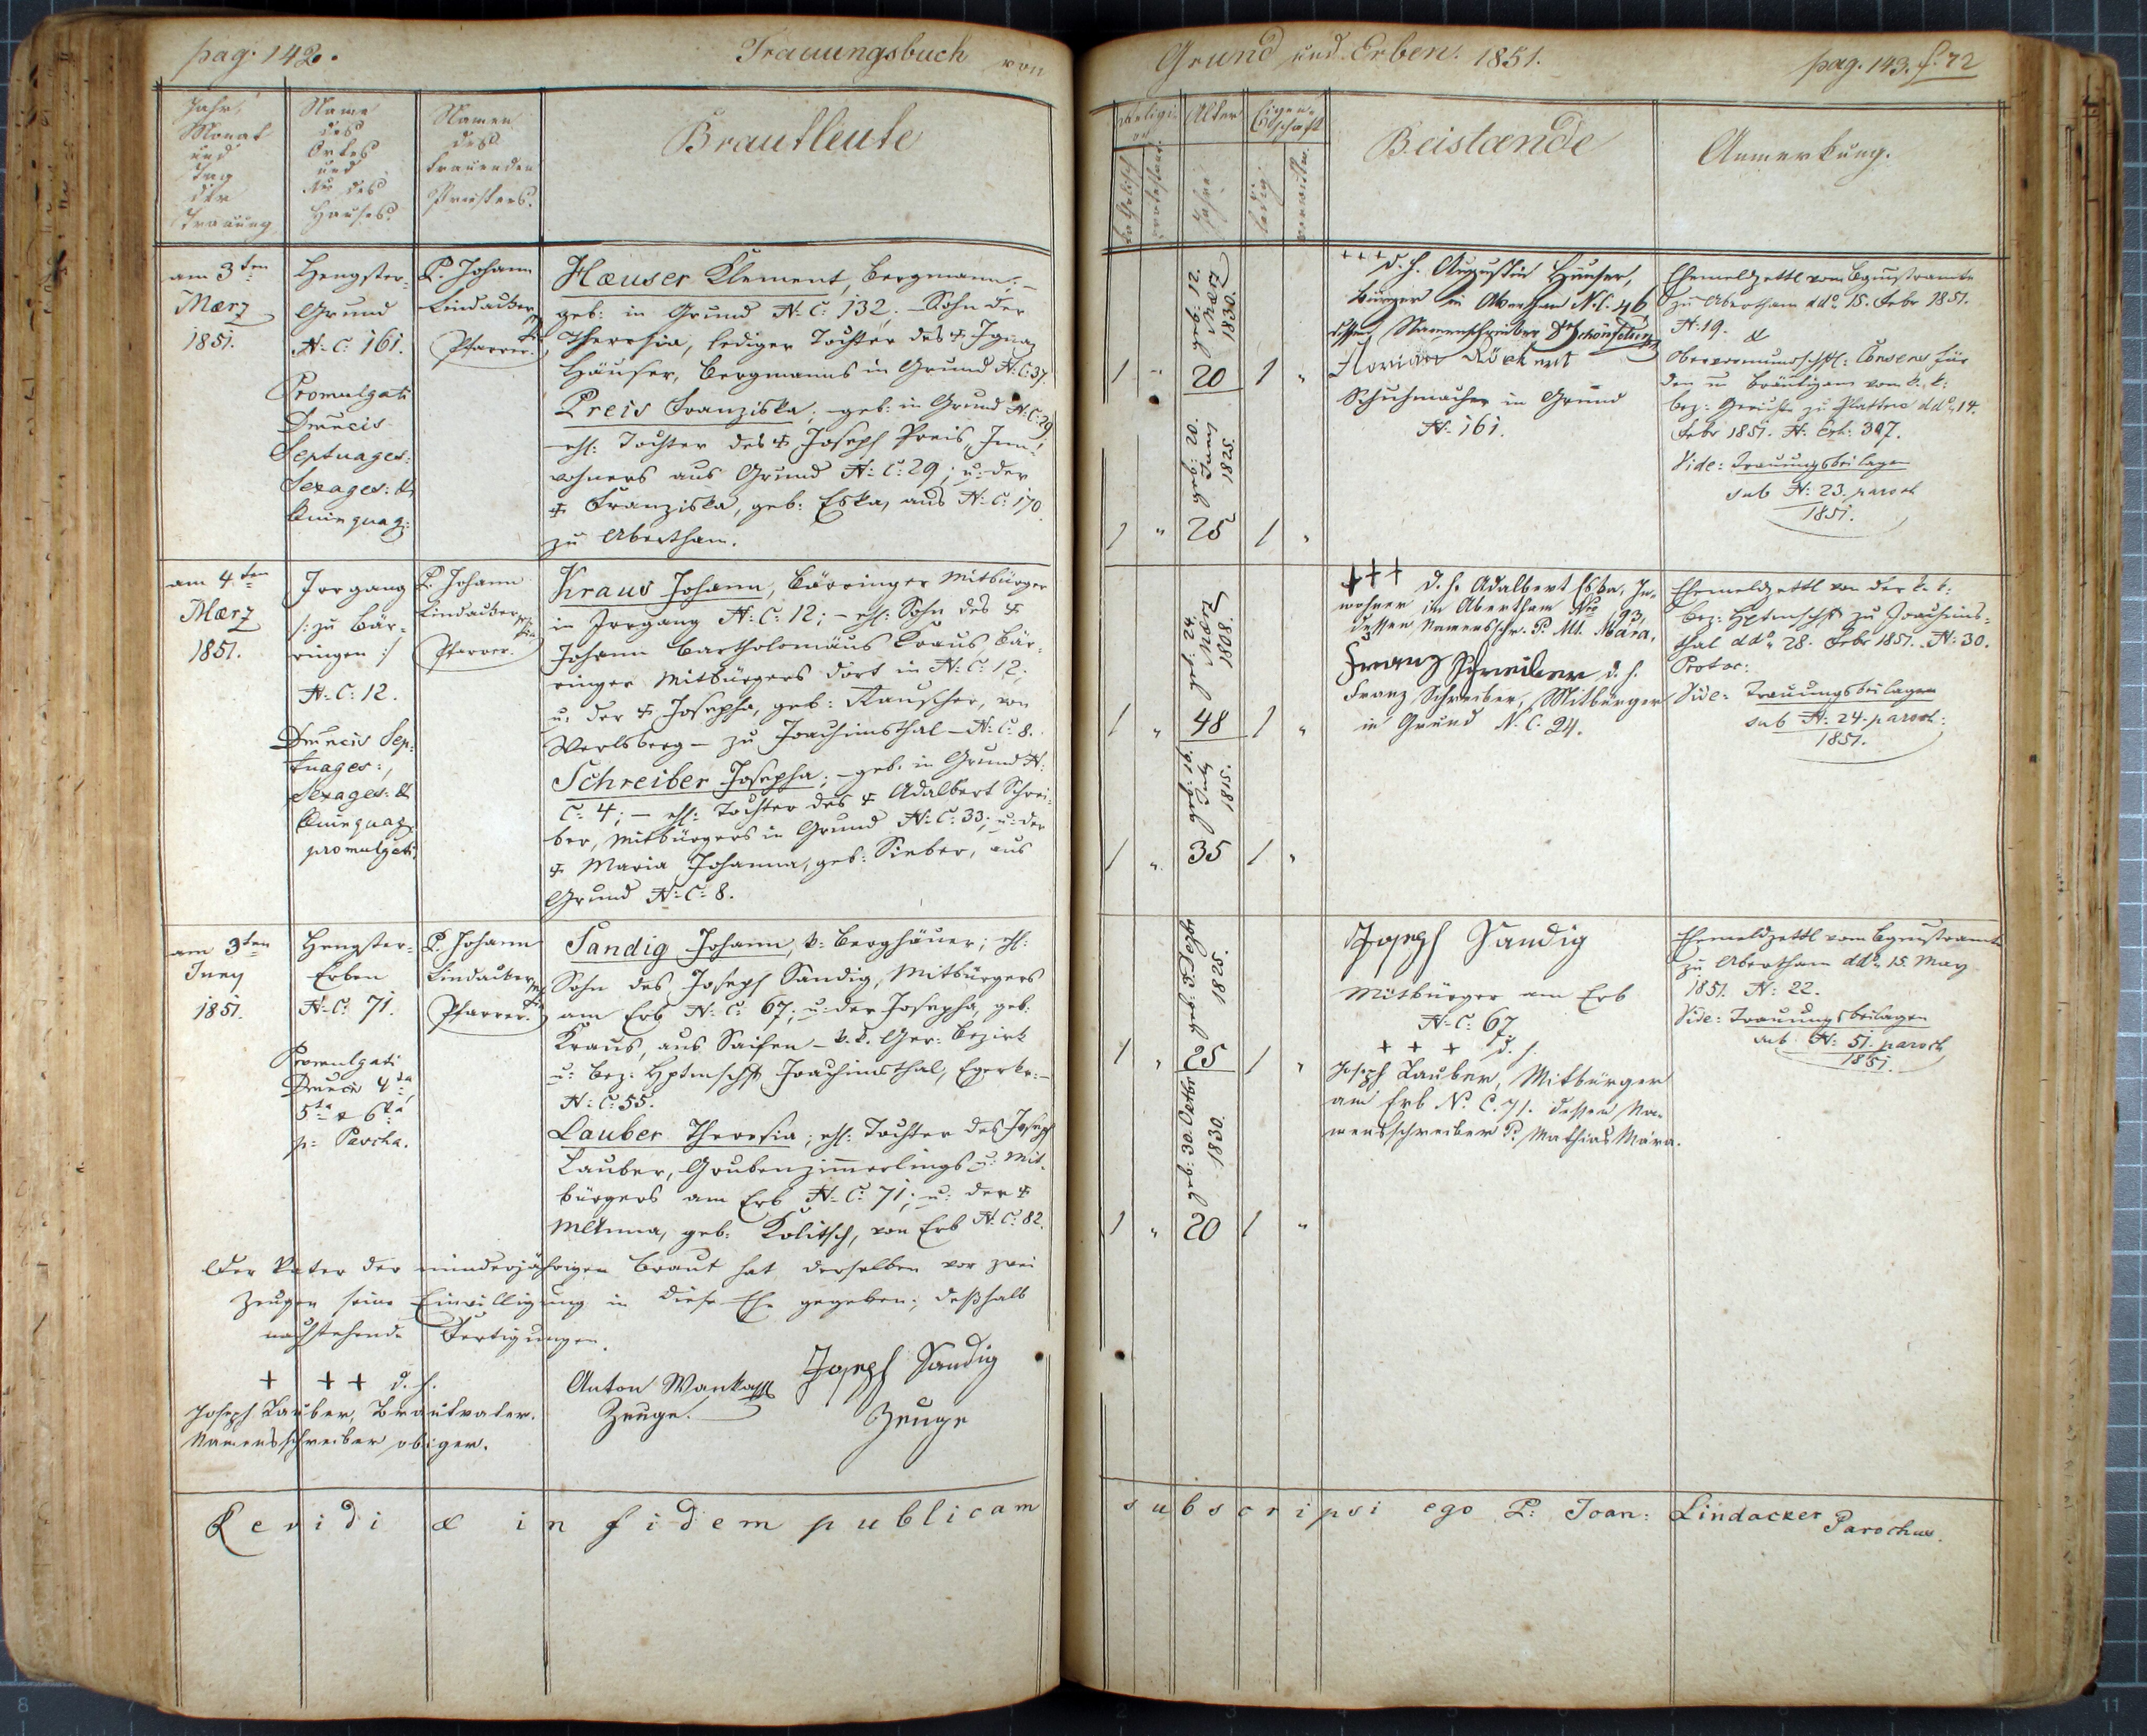 pag. 142.
Trauungsbuch von
Jahr,
Monat
und
Tag
der
Trauung
Name
des
Ortes
und
Nr des
Hauses.
Namen
des
trauenden
Priesters.
Brautleute
am 3ten
Mærz
1851.
Hengster-
Grund
N. C: 161.
Promulgati
Dmncis
Septuages:
Sexages: &
Quinquag:
P. Johann
Lindauker
Pfarrer.
Hæuser Klement, Bergmann; –
geb: in Grund N. C: 132; – Sohn der
Theresia, lediger Tochter des † Ignaz
Häuser, Bergmanns in Grund N. C: 37.
Preis Franziska; – geb: in Grund N: C: 29
– ehl: Tochter des † Joseph Preis, Inn-
wohners aus Grund N: C: 29; u: der
† Franziska, geb: Eska, aus N: C: 170.
zu Abertham.
am 4ten
Mærz
1851.
Irrgang
/: zu Bär-
ringen :/
N: C: 12.
Dmncis Sep-
tuages:,
Sexages: &
Quinquag:
promulgati
P. Johann
Lindauker
Pfarrer.
Kraus Johann, Bärringer Mitbürger
in Irrgang N: C: 12; – ehl: Sohn des †
Johann Bartholomäus Kraus, Bär-
ringer Mitbürgers dort in N: C: 12.
u. der † Josepha, geb: Rauscher, von
Werlsberg – zu Joachimsthal – N: C: 8.
Schreiber Josepha; – geb. in Grund N:
C: 4; – ehl: Tochter des † Adalbert Schrei-
ber, Mitbürgers in Grund N: C: 33; u: der
† Maria Johanna, geb: Sieber, aus
Grund N: C: 8.
am 3ten
Juny
1851.
Hengster-
Erben
N. C: 71.
Promulgati
Dmncis 4ta,
5ta & 6ta
p: Pascha.
P. Johann
Lindauker
Pfarrer.
Sandig Johann, k: Berghäuer; ehl:
Sohn des Joseph Sandig, Mitbürgers
am Erb N. C: 67; u: der Josepha, geb:
Kraus, aus Saifen – k. k. Ger: Bezirk
u: Bez: Hptmschft Joachimsthal, Egerkr: –
N: C: 55.
Lauber Theresia; ehl: Tochter des Joseph
Lauber, Grubenzimmerlings u: Mit-
bürgers am Erb N. C: 71; u: der †
MAnna, geb: Kolitsch, von Erb N. C: 82.
Der Vater der minderjährigen Braut hat derselben vor zwei
Zeugen seine Einwilligung in diese Ehe gegeben; deßhalb
nachstehende Fertigungen.
+ + + d. h.
Joseph Lauber, Brautvater.
Namensschreiber obiger.
Anton Wanka
Zeuge.
Joseph Sandig
Zeuge
Revidi & in fidem publicam
Grund und Erben. 1851.
pag. 143. f. 72
Religi-
on
katholisch
protestant.
Alter
Jahre
Eigen-
schaft
ledig
verwittw.
Beistænde
Anmerkung.
geb: 12. Mærz 1830.
1 " 20 1 "
geb: 20. 1825.
1 " 25 1 "
+++ d. h. Augustin Häuser,
Bürger in Abertham N. C: 46,
dessen Namenschreiber
Florian Röckert
Schuhmacher in Grund
N. 161.
Ehemeldzettl vom Bgmstramte
zu Abertham ddo 15. Febr 1851.
N: 19. &
Obervormundschftl: Consens für
den m Bräutigam vom k. k:
Bez: Gericht zu Platten ddo 14.
Febr 1851. N: Exh: 307.
Vide: Trauungsbeilagen
sub N: 23. paroch
1851.
geb: 24. 1803.
1 " 48 1 "
geb: 16. July 1815.
1 " 35 1 "
+++ d. h. Adalbert Eska, In-
wohner in Abertham Nro 93,
dessen Namensschr. P. Mt. Mára.
Franz Schreiber d. h.
Franz Schreiber, Mitbürger
in Grund N. C. 24.
Ehemeldzettl von der k. k:
Bez: Hptmschft zu Joachims-
thal ddo 28. Febr 1851. N: 30.
Protoc:
Vide: Trauungsbeilagen
sub N: 24. paroch:
1851.
geb: 1825.
1 " 25 1 "
geb: 30. Octbr 1830.
1 " 20 1 "
Joseph Sandig
Mitbürger am Erb
N. C: 67
+ + + d. h.
Joseph Lauber, Mitbürger
am Erb N. C. 71. dessen Na-
mensschreiber P. Mathias Mára.
Ehemeldzettl vom Bgmstramte
zu Abertham ddo 15. May
1851. N: 22.
Vide: Trauungsbeilagen
sub N: 51. paroch
1851.
subscripsi ego P: Joan: Lindacker Parochus.